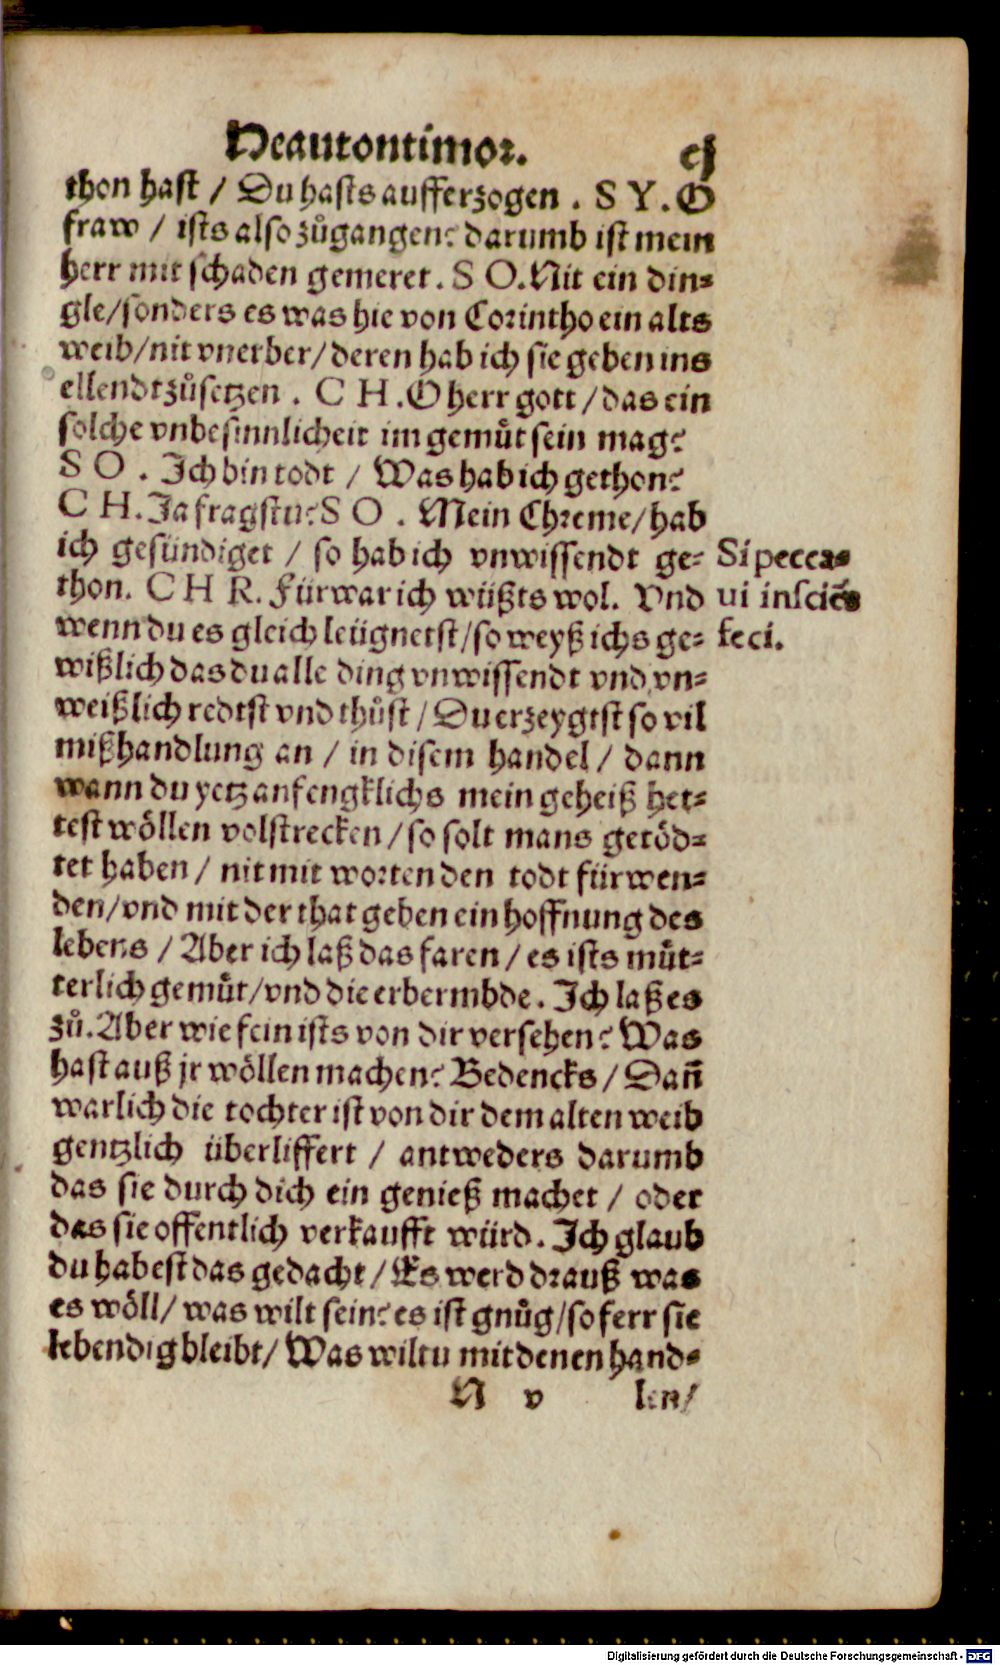 Heautontimor. cj
thon hast / Du hasts aufferzogen . S Y . O
fraw / ists also zůgangen? darumb ist mein
herr mit schaden gemeret. S O. Nit ein din⸗
gle/sonders es was hie von Corintho ein alts
weib/nit vnerber/deren hab ich sie geben ins
ellendt zůsetzen . C H . O herr gott / das ein
solche vnbesinnlicheit im gemůt sein mag?
S O . Ich bin todt / Was hab ich gethon?
C H. Ja fragstu? S O . Mein Chreme/hab
ich gesündiget / so hab ich vnwissendt ge⸗
thon. C H R. Fürwar ich wüßts wol. Vnd
wenn du es gleich leügnetst/so weyß ichs ge⸗
wißlich das du alle ding vnwissendt vnd vn⸗
weißlich redtst vnd thůst / Du erzeygtst so vil
mißhandlung an / in disem handel / dann
wann du yetz anfengklichs mein geheiß het⸗
test wöllen volstrecken / so solt mans getöd⸗
tet haben / nit mit worten den todt fürwen⸗
den/vnd mit der that geben ein hoffnung des
lebens / Aber ich laß das faren / es ists můt⸗
terlich gemůt/vnd die erbermbde. Ich laß es
zů. Aber wie fein ists von dir versehen? Was
hast auß jr wöllen machen? Bedencks / Dañ
warlich die tochter ist von dir dem alten weib
gentzlich überliffert / antweders darumb
das sie durch dich ein genieß machet / oder
das sie offentlich verkaufft würd. Ich glaub
du habest das gedacht / Es werd drauß was
es wöll/ was wilt sein? es ist gnůg/so ferr sie
lebendig bleibt/ Was wiltu mit denen hand⸗
N v len/
Si pecca⸗
ui insciẽs
feci.
Digitalisierung gefördert durch die Deutsche Forschungsgemeinschaft - DFG